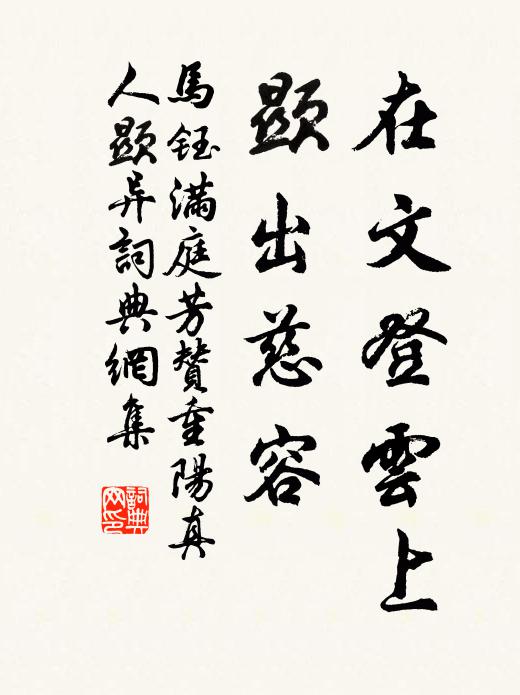 在文登雲上
顯出慈容
馬鈺滿庭芳贊重陽真
人顯异詞典網集
詞典网印